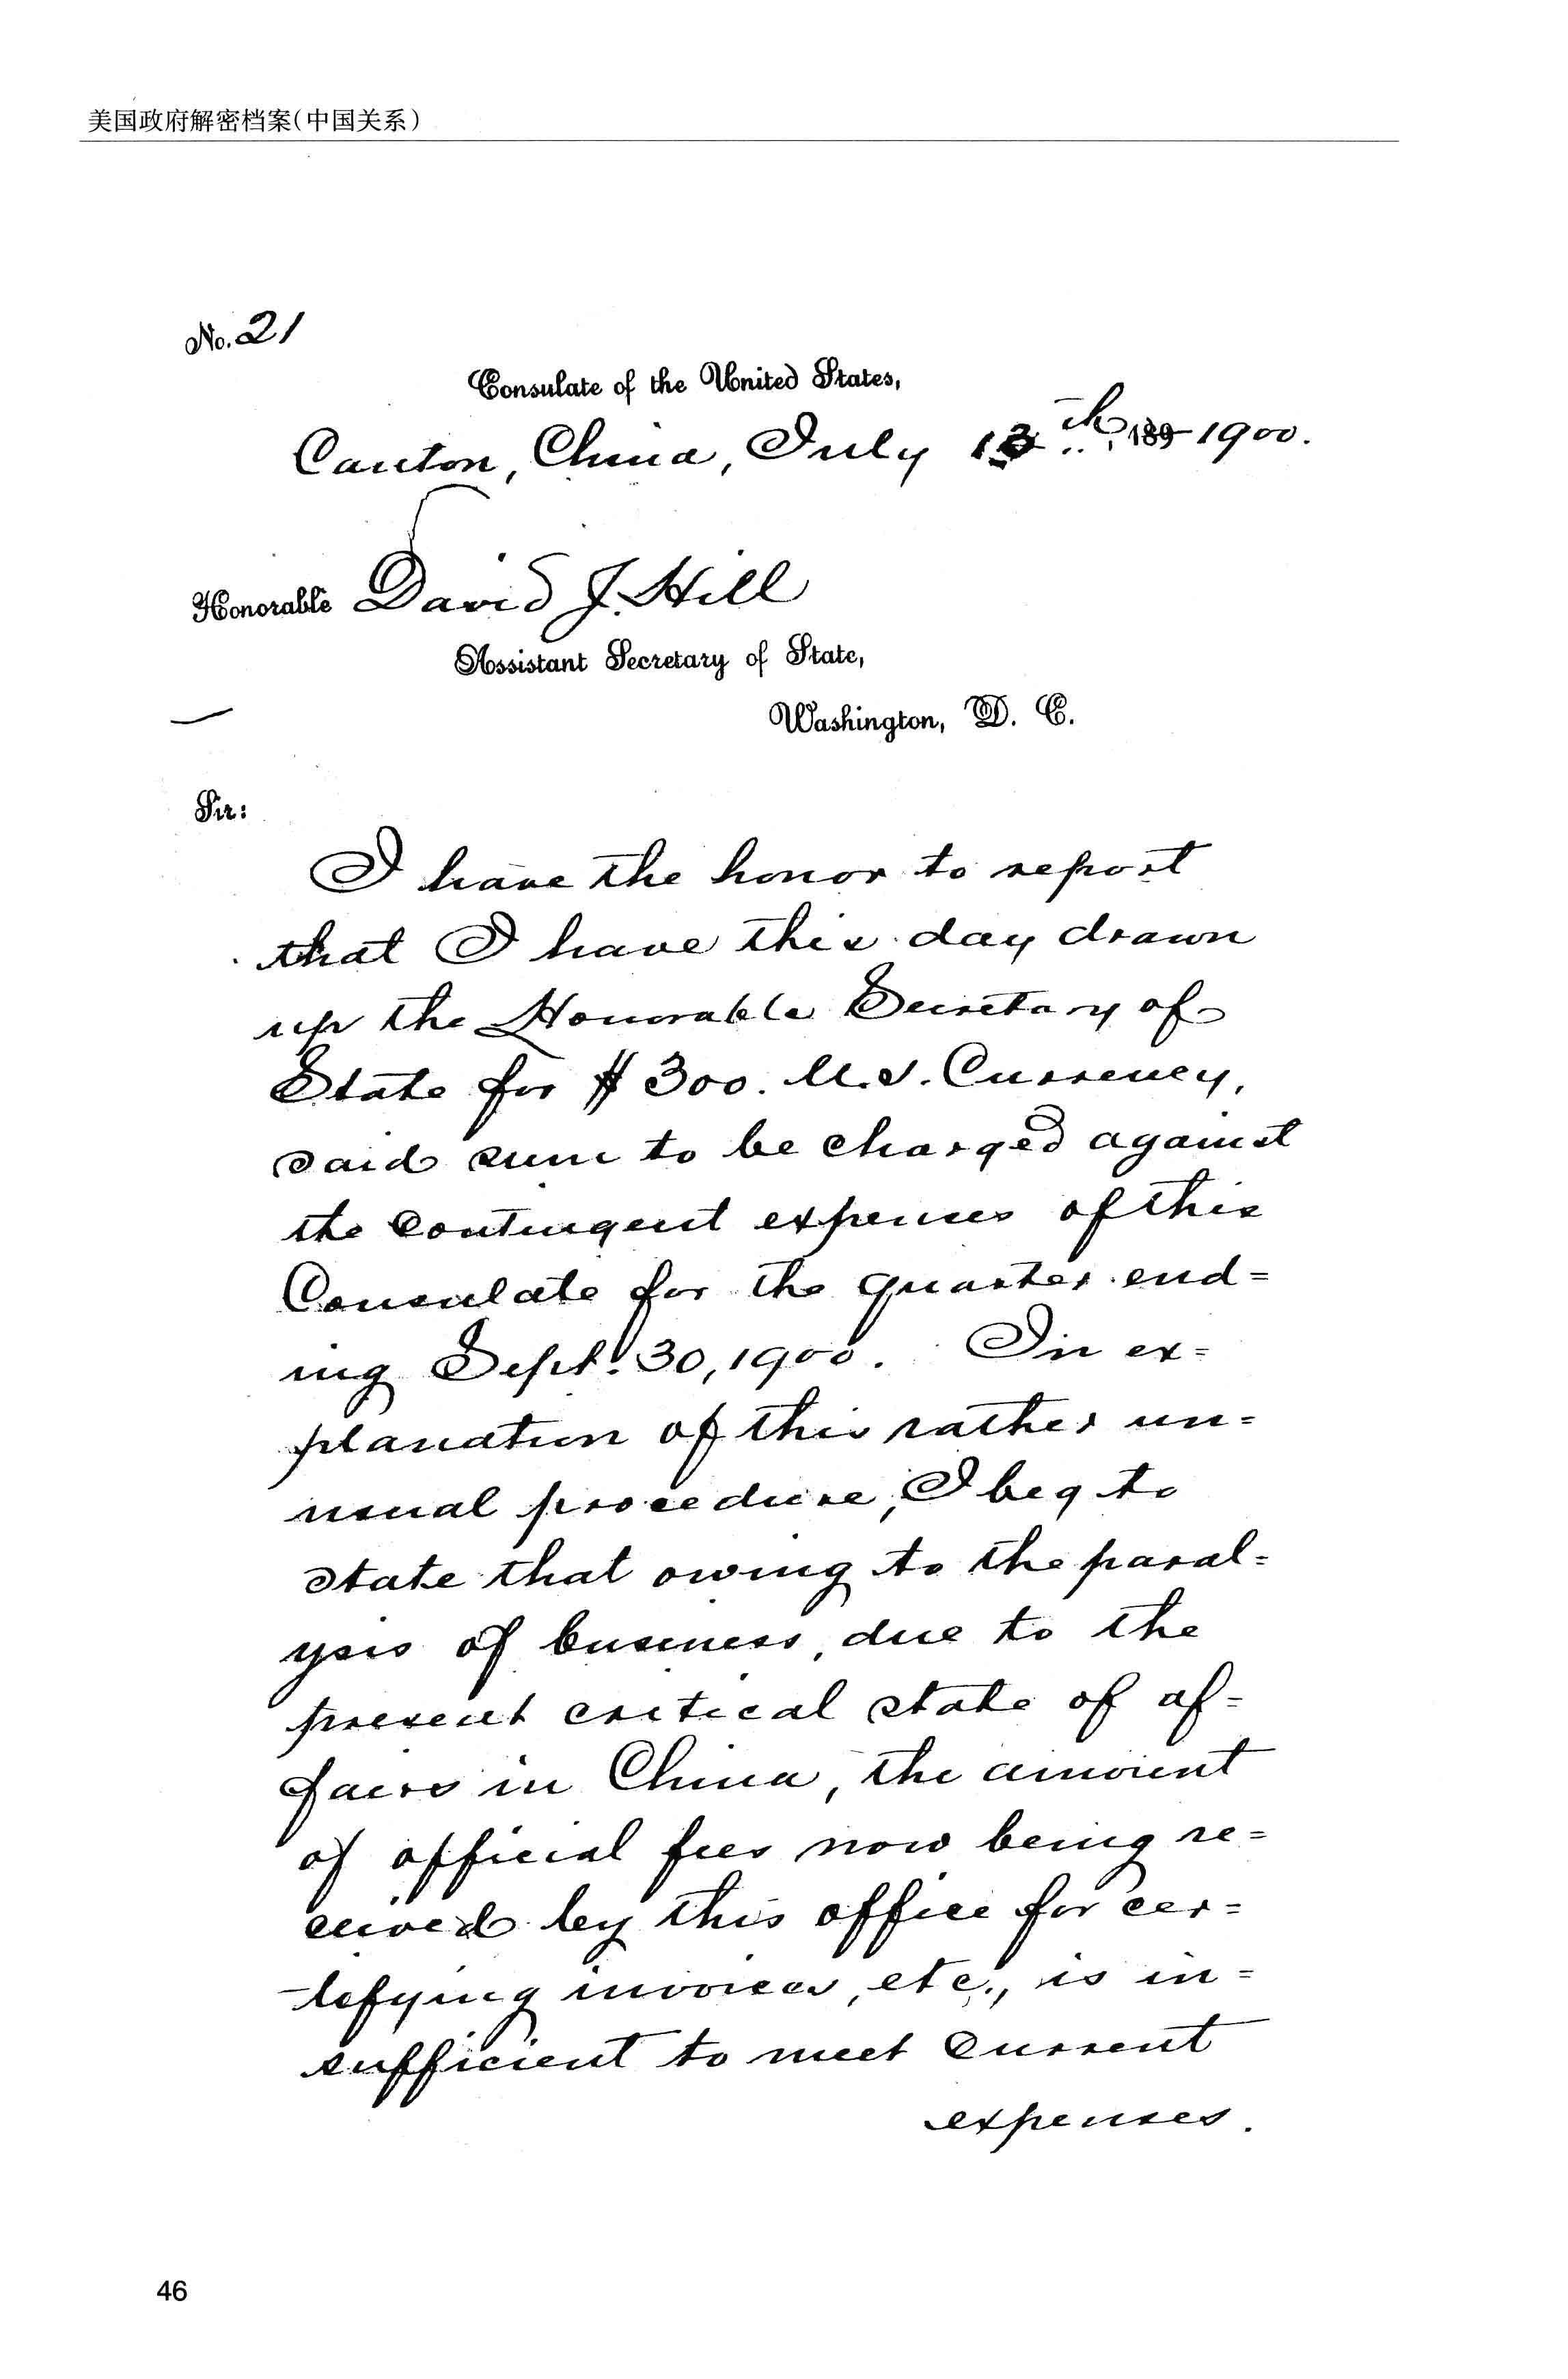 美国政府解密档案(中国关系)
No. 21
Consulate of the United States,
Canton, China, July 13th, 189 1900.
Honorable David J. Hill
Assistant Secretary of State,
Washington, D. C.
Sir:
I have the honor to report
that I have this day drawn
up the Honorable Secretary of
State for $300. U.S. Currency,
said sum to be charged against
the contingent expenses of this
Consulate for the quarter end=
ing Sept. 30, 1900. In ex=
planation of this rather un=
usual procedure, I beg to
state that owing to the paral=
ysis of business, due to the
present critical state of af=
fairs in China, the amount
of official fees now being re=
ceived by this office for cer=
tifying invoices, etc., is in=
sufficient to meet current
expenses.
46